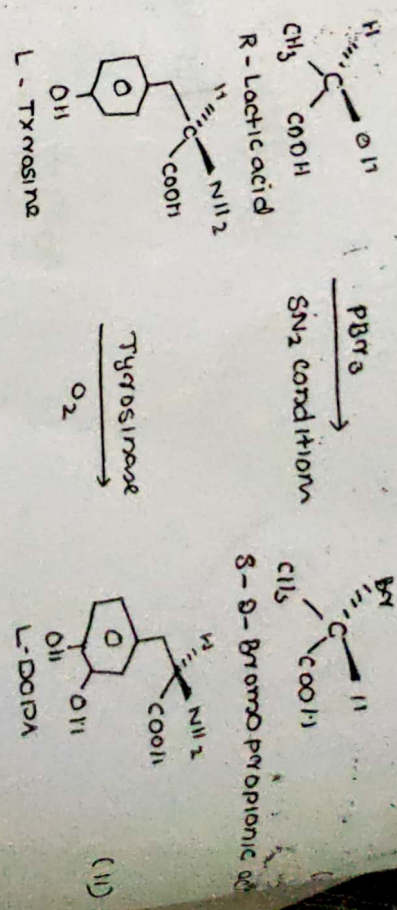 H
OH
C
CH3
COOH
R-Lactic acid
PBr3
SN2 condition
Br
H
C
CH3
COOH
S-2-Bromopropionic
H
NH2
C
COOH
OH
L-Tyrosine
Tyrosinase
O2
H
NH2
COOH
OH
OH
L-DOPA
(11)